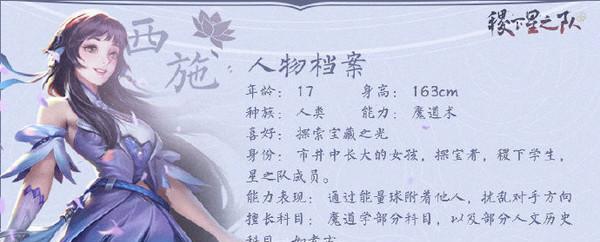 稷下星之队
西施：
人物档案
年龄： 17 身高： 163cm
种族： 人类 能力： 魔道术
喜好： 探索宝藏之光
身份： 市井中长大的女孩，探宝者，稷下学生，
星之队成员。
能力表现： 通过能量球附着他人，扰乱对手方向
擅长科目： 魔道学部分科目，以及部分人文历史
科目，如考古